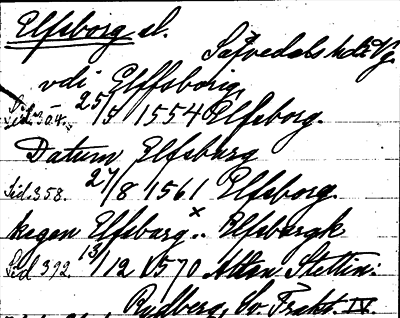 Elfsborg sl.
Säfvedals hd. Vg.
vdi Elffsborig,
Sid. 304. 25/5 1554 Elfsborg.
Datum Elfsburg
Sid. 358. 27/8 1561 Elfsborg.
kegen Elfsbarg.. x Elfsbergk
Sid 392. 13/12 1570 Alten Stettin.
Rydberg, Sv. Trakt. IV.